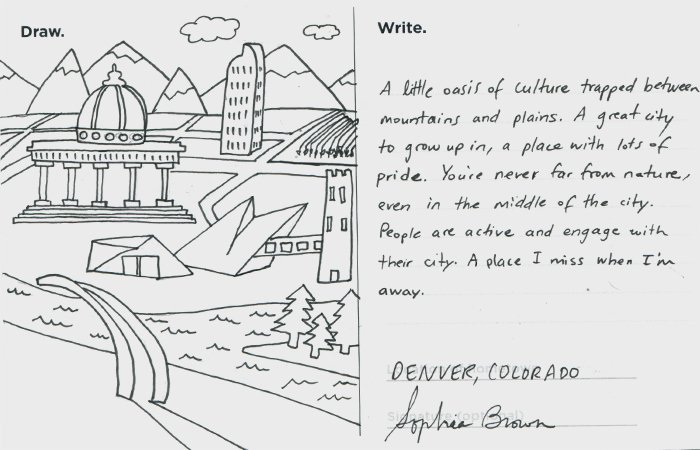 Draw.
Write.
A little oasis of culture trapped between
mountains and plains. A great city
to grow up in, a place with lots of
pride. You're never far from nature,
even in the middle of the city.
People are active and engage with
their city. A place I miss when I'm
away.
DENVER, COLORADO
Signature (optional)
Sophia Brown